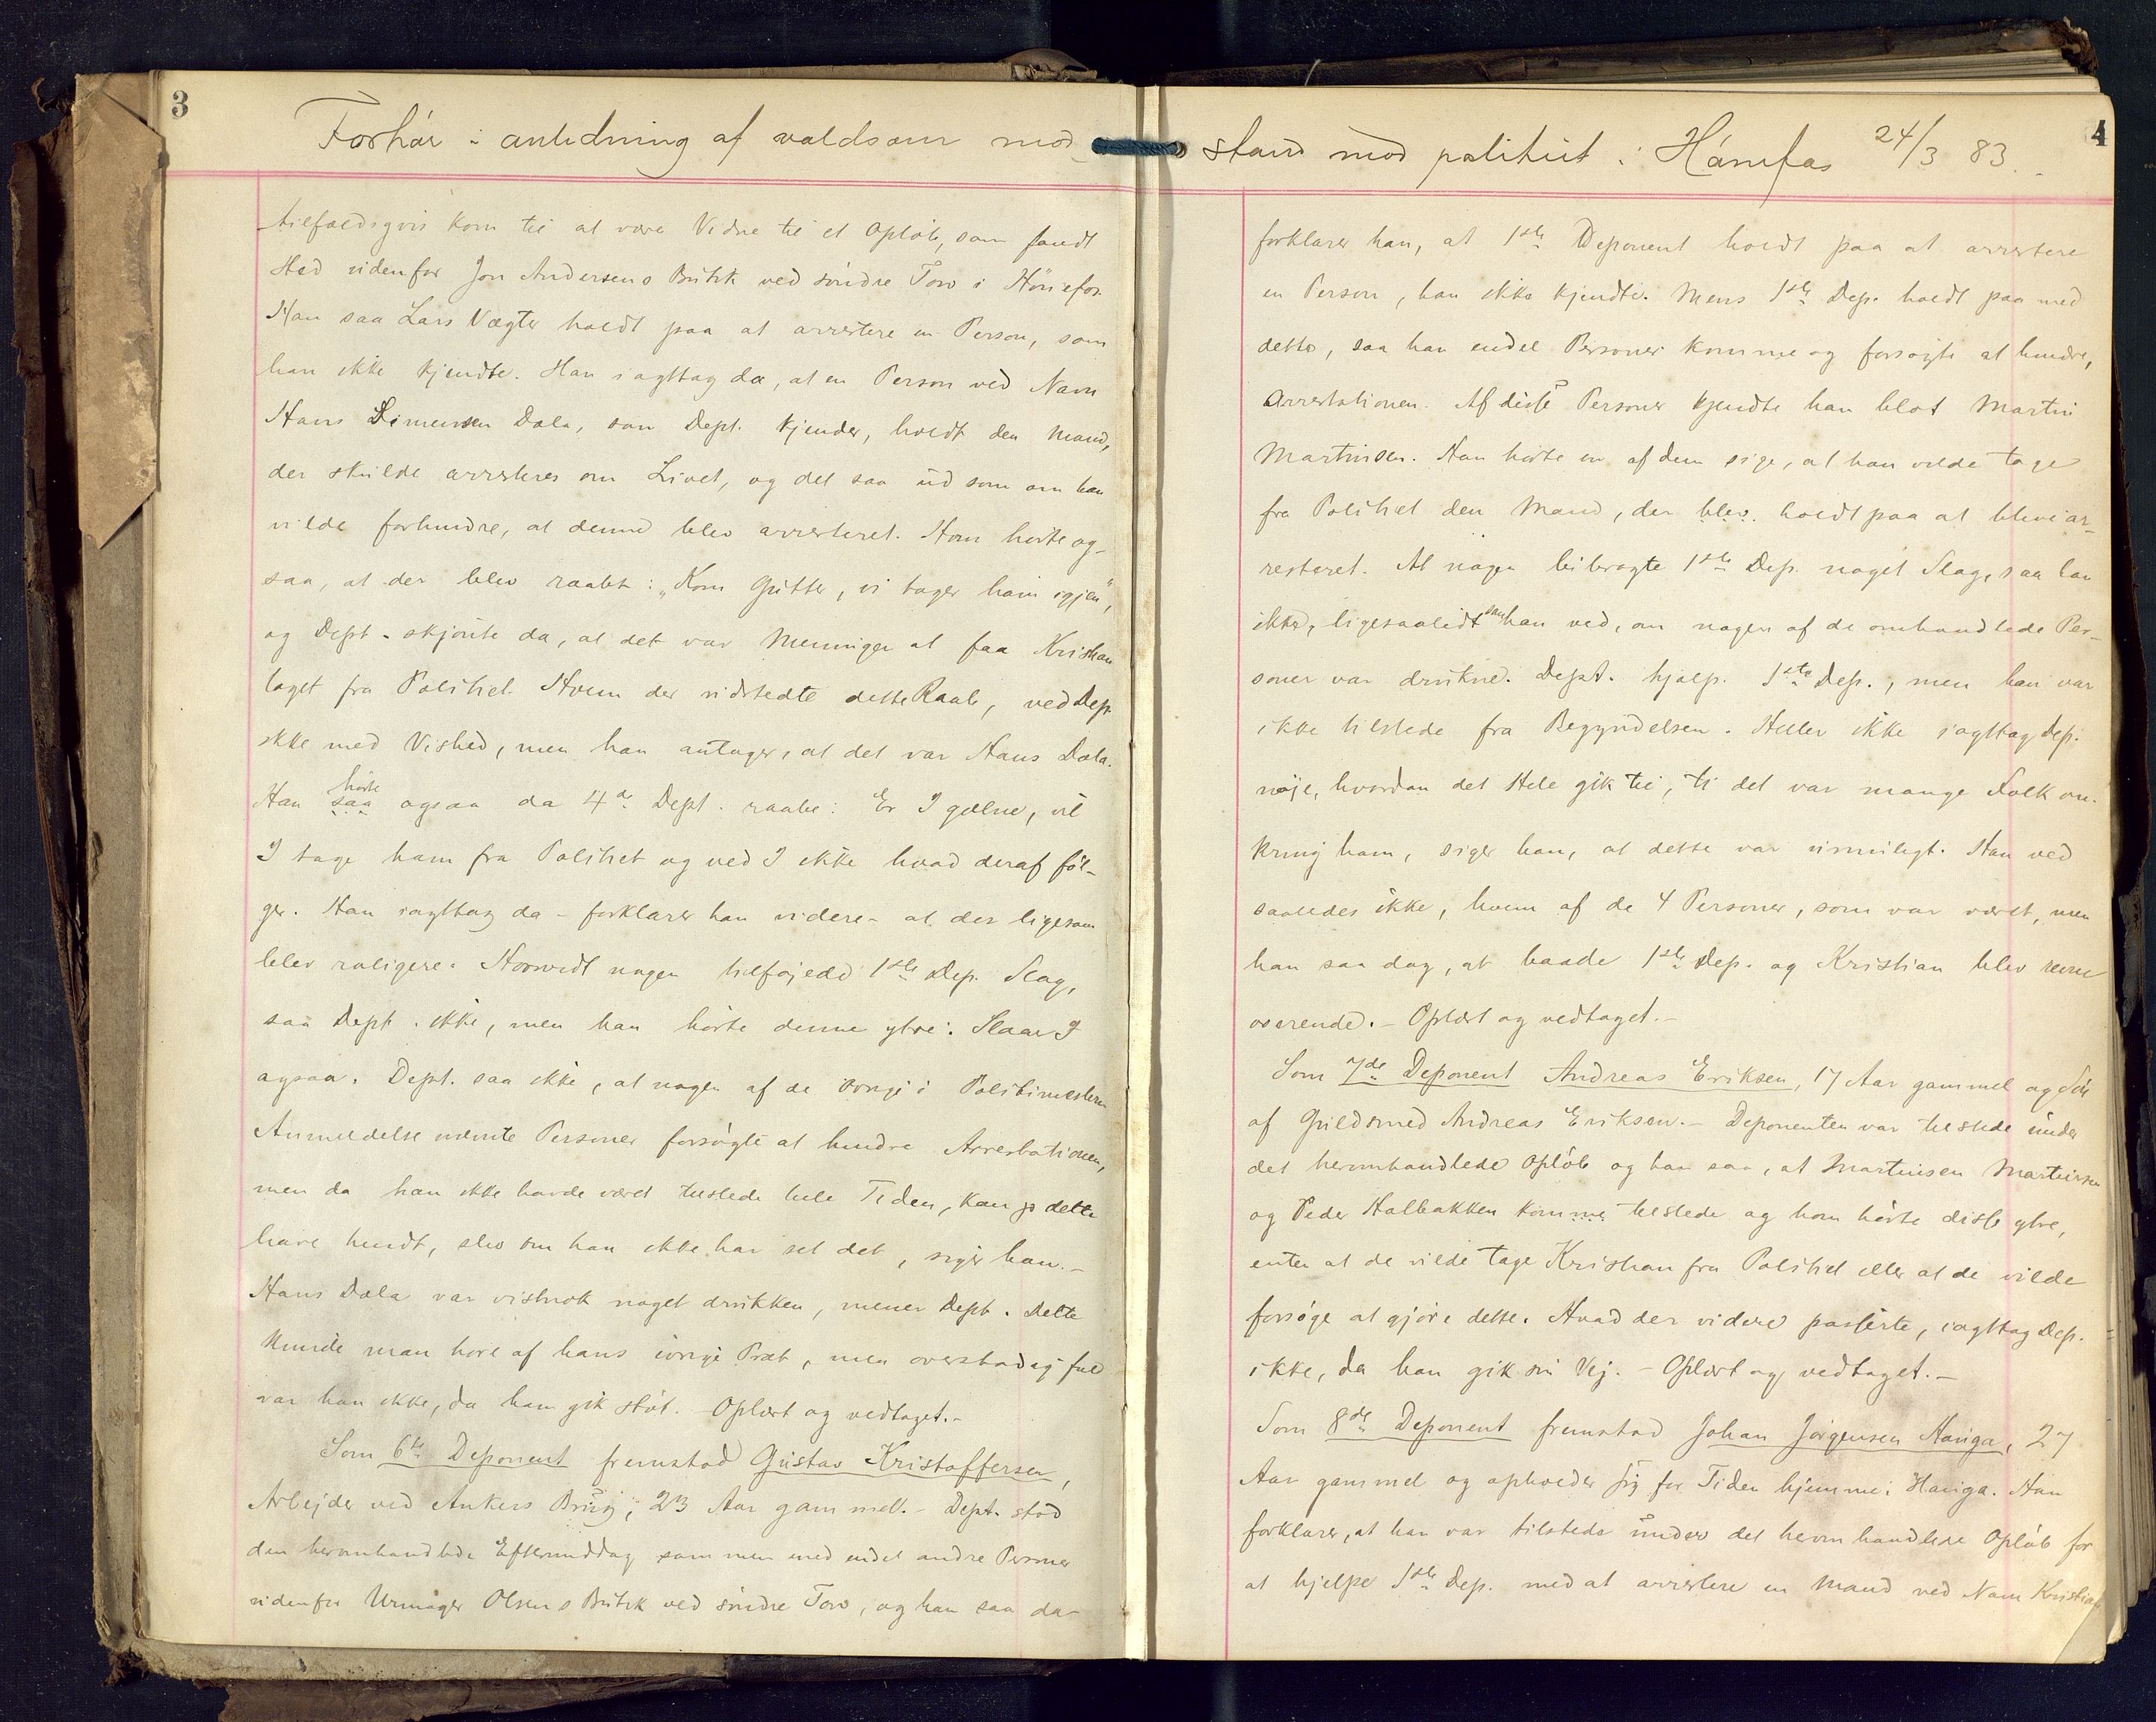 3
Forhör i anledning af voldsom mod-
tilfældigvis kom til at være Vidne til et Opløb, som fandt
Sted udenfor Jon Andersens Butik ved søndre Torv i Hönefos.
Han saa Lars Vægter holdt paa at arrestere en Person, som
han ikke kjendte. Han iagttog da, at en Person ved Navn
Hans Simensen Dala, som Dept. kjender, holdt den Mand,
der skulde arresteres om Livet, og det saa ud som om han
vilde forhindre, at denne blev arresteret. Han hørte og-
saa, at der blev raabt: „Kom Gutter, vi tager ham igjen",
og Dept. skjønte da, at det var Meningen at faa Kristian
taget fra Politiet. Hvem der udstedte dette Raab, ved Dep.
ikke med Vished, men han antager, at det var Hans Dala.
Han saa hørte ogsaa da 4de Dept. raabe: Er I galne, vil
I tage ham fra Politiet og ved I ikke hvad deraf föl-
ger. Han iagttog da - forklarer han videre - at der ligesom
blev roligere. Hvorvidt nogen tilføjede 1ste Dep. Slag,
saa Dept. ikke, men han hørte denne ytre: Slaar I
ogsaa. Dept. saa ikke, at nogen af de øvrige i Politimesterens
Anmeldelse nævnte Personer forsøgte at hindre Arrestationen,
men da han ikke havde været tilstede hele Tiden, kan jo dette
have hendt, selv om han ikke har set det, siger han. -
Hans Dala var vistnok noget drukken, mener Dept. Dette
kunde man høre af hans ivrige Prat, men overstadig ful
var han ikke, da han gik støt. Oplæst og vedtaget. -
Som 6te Deponent fremstod Gustav Kristoffersen,
Arbejder ved Ankers Brug, 23 Aar gammel. - Dept. stod
den heromhandlede Eftermiddag sammen med endel andre Personer
udenfor Urmager Olsens Butik ved søndre Torv, og han saa da
4
stand mod politiet i Hönefos 24/3 83.
forklarer han, at 1ste Deponent holdt paa at arrestere
en Person, han ikke kjendte. Mens 1ste Dep. holdt paa med
dette, saa han endel Personer komme og forsøgte at hindre,
Arrestationen. Af disse Personer kjendte han blot Martin
Martinsen. Han hørte en af dem sige, at han vilde tage
fra Politiet den Mand, der blev holdt paa at blive ar-
resteret. At nogen bibragte 1ste Dep. noget Slag, saa han
ikke, ligesaalidt som han ved, om nogen af de omhandlede Per-
soner var drukne. Dept. hjalp 1ste Dep., men han var
ikke tilstede fra Begyndelsen. Heller ikke iagttog Dep.
nøje, hvordan det Hele gik til, ti det var mange Folk om-
kring ham, siger han, at dette var umuligt. Han ved
saaledes ikke, hvem af de 4 Personer, som var været, men
han saa dog, at baade 1ste Dep. og Kristian blev revne
overende. - Oplæst og vedtaget. -
Som 7de Deponent Andreas Eriksen, 17 Aar gammel og Søn
af Guldsmed Andreas Eriksen. - Deponenten var tilstede under
det heromhandlede Opløb og han saa, at Martinsen Martinsen
og Peder Halbakken komme tilstede og han hørte disse ytre,
enten at de vilde tage Kristian fra Politiet eller at de vilde
forsøge at gjøre dette. Hvad der videre passerte, iagttog Dep.
ikke, da han gik sin Vej. - Oplæst og vedtaget. -
Som 8de Deponent fremstod Johan Jørgensen Hauga, 27
Aar gammel og opholder sig for Tiden hjemme i Hauga. Han
forklarer, at han var tilstede under det heromhandlede Opløb for
at hjelpe 1ste Dep. med at arrestere en Mand ved Navn Kristian